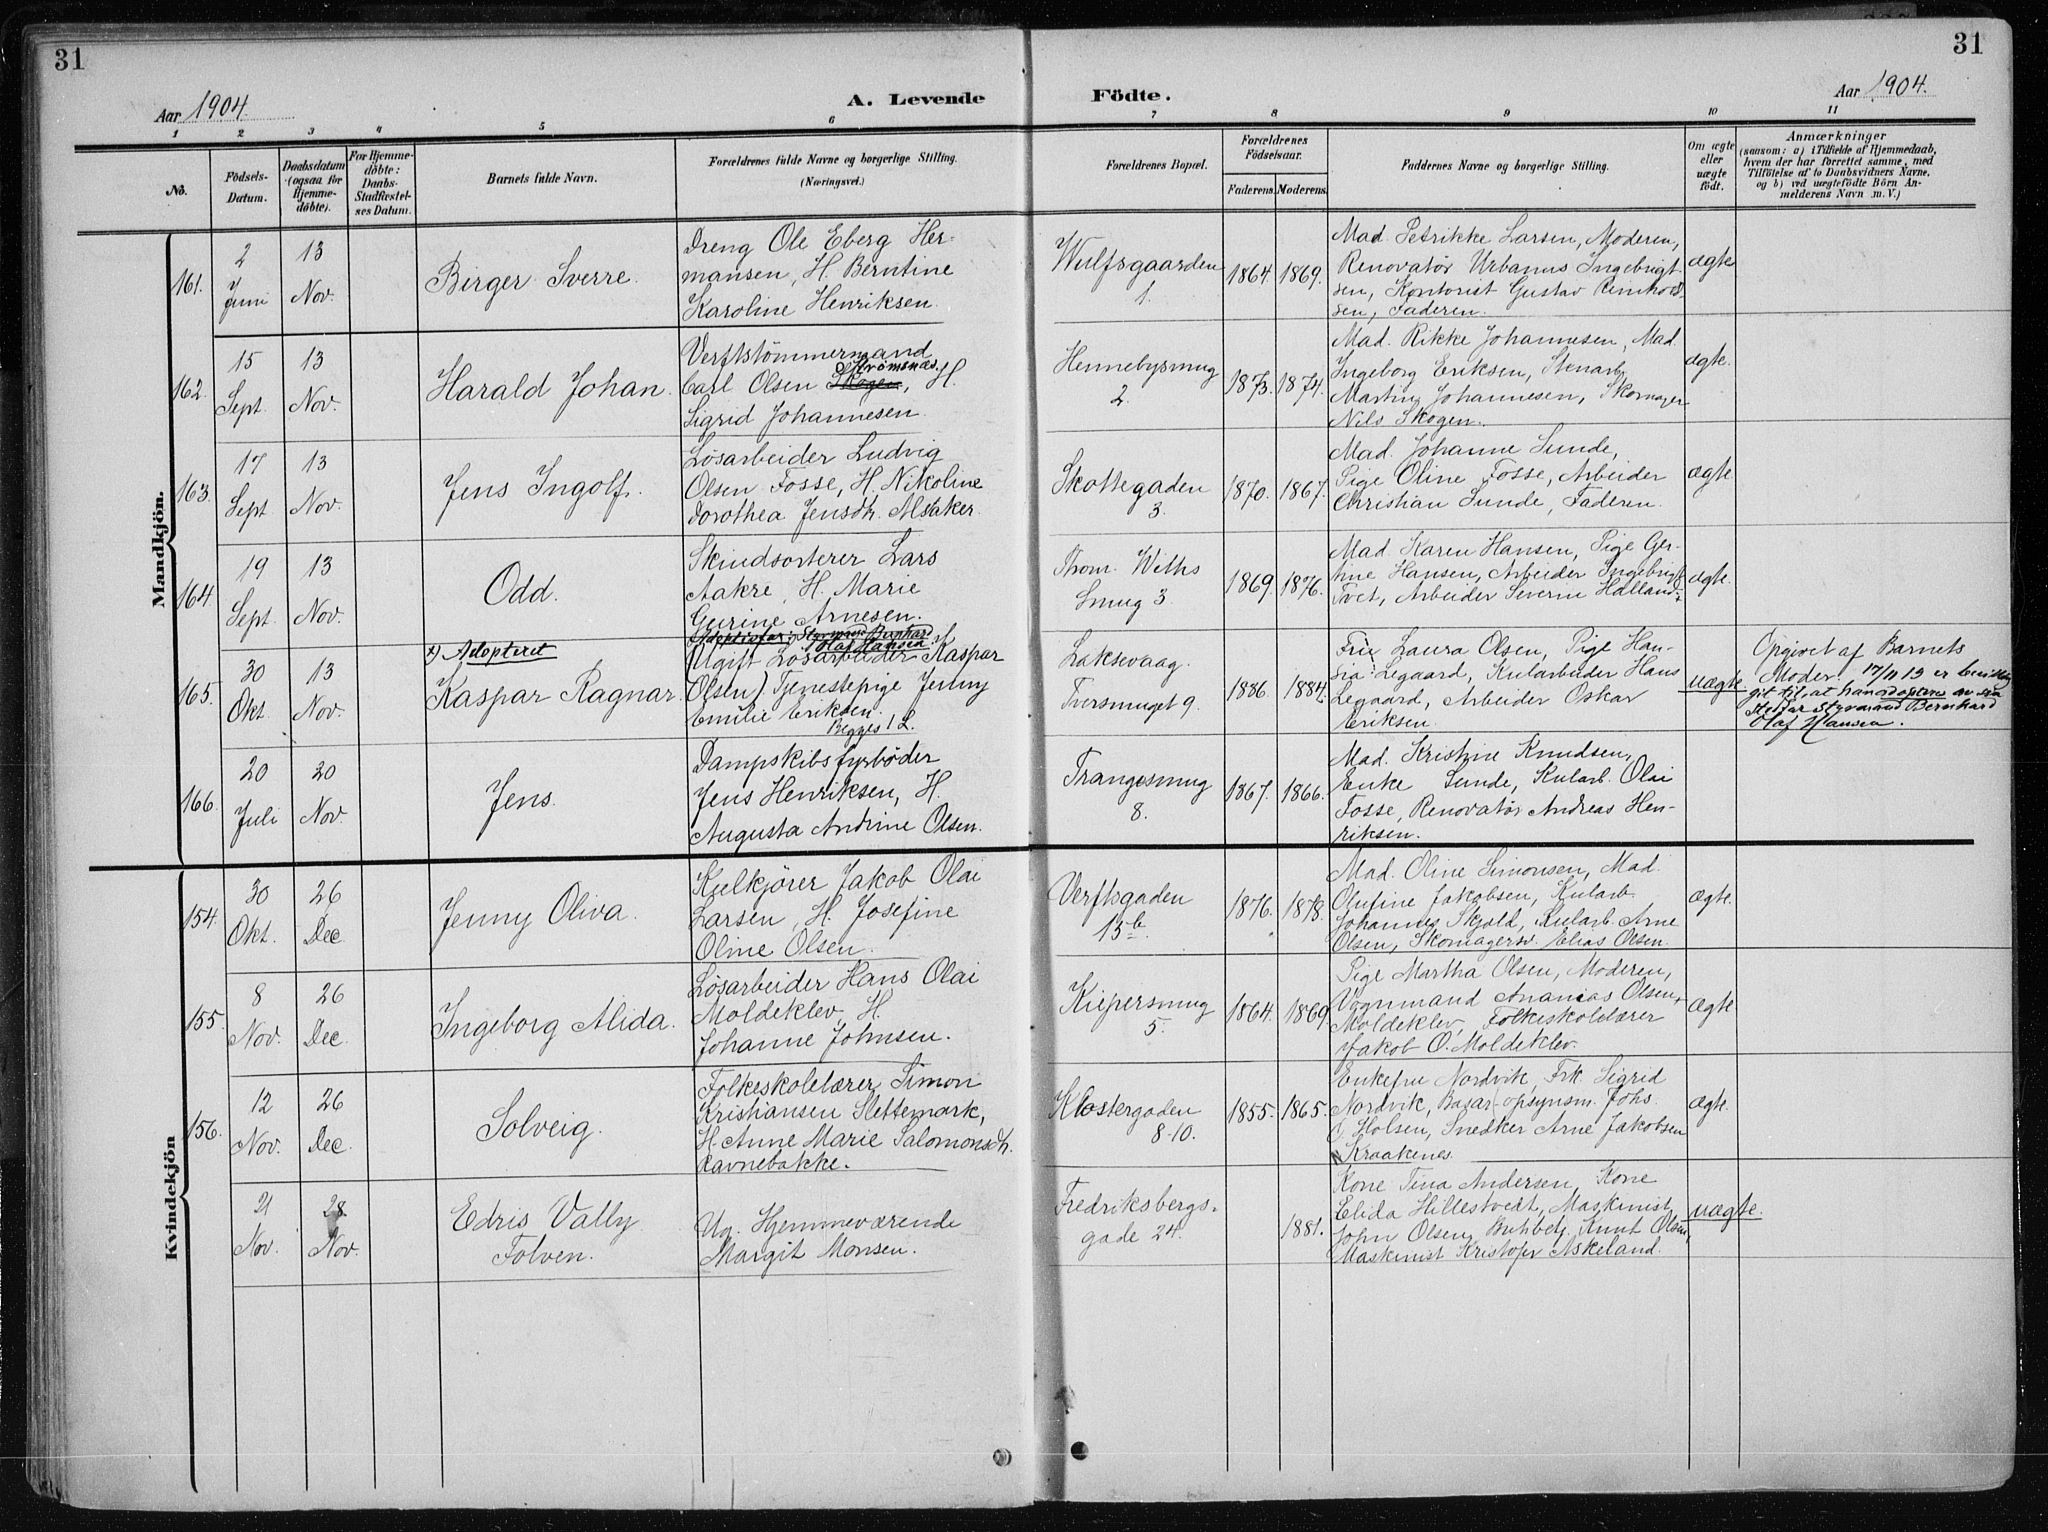 31
31
Aar 1904.
A. Levende
Födte.
Aar 1904.
1 2 3 4 5 6 7 8 9 10 11
No.
Födsels-
Datum.
Daabsdatum
(ogsaa för
Hjemme-
döbte).
For Hjemme-
döbte:
Daabs-
Stadfæstel-
ses Datum.
Barnets fulde Navn.
Forældrenes fulde Navne og borgerlige Stilling.
(Næringsvei.)
Forældrenes Bopæl.
Forældrenes
Födselsaar.
Faderens. Moderens.
Faddernes Navne og borgerlige Stilling.
Om ægte
eller
uægte
födt.
Anmærkninger
(saasom: a) i Tilfælde af Hjemmedaab,
hvem der har forrettet samme, med
Tilföielse af to Daabsvidners Navne,
og b) ved uægtefödte Börn An-
melderens Navn m.V.)
Mandkjön.
161.
2
Juni
13
Nov.
Birger Sverre.
Dreng Ole Eberg Her-
mansen, H. Berntine
Karoline Henriksen.
Wulfsgaarden
1.
1864. 1869.
Mad. Petrikke Larsen, Moderen,
Renovatør Urbanus Ingebrigt-
sen, Kontorist Gustav
sen, Faderen.
ægte
162.
15
Sept.
13
Nov.
Harald Johan.
Verftstømmermand
Strømsnæs
Carl Olsen Skogen, H.
Sigrid Johannesen.
Hennebysmug
2.
1873. 1874.
Mad. Rikke Johannesen, Mad.
Ingeborg Eriksen, Stenarb.
Martin Johannesen, Skomager
Nils Skogen.
ægte.
163.
17
Sept
13
Nov.
Jens Ingolf.
Løsarbeider Ludvig
Olsen Fosse, H. Nikoline
Dorothea Jensdh. Alsaker.
Skottegaden
3.
1870. 1867.
Mad. Johanne Sunde,
Pige Oline Fosse, Arbeider
Christian Sunde, Faderen.
ægte
164.
19
Sept.
13
Nov.
Odd.
Skindsorterer Lars
Aakre, H. Marie
Geirine Arnesen.
Thom. Withs
Smug 3.
1869. 1876.
Mad. Karen Hansen, Pige Ger-
tine Hansen, Arbeider Ingebrigt
Tvet, Arbeider Severin Halland.
ægte.
165.
30
Okt.
13
Nov.
x) Adopteret
Kaspar Ragnar.
Adoptivfar: Styrmand Bernhard
Olaf Hansen
(Ugift Løsarbeider Kaspar
Olsen) Tjenestepige Jenny
Emilie Eriksen.
Begges 1 L.
Laksevaag.
Tversmuget 9.
1886. 1884.
Frue Laura Olsen, Pige Han-
sia Legaard, Kularbeider Hans
Legaard, Arbeider Oskar
Eriksen.
uægte.
Opgivet af Barnets
Moder. 17/11 13 er bevilling
git til, at han adopteres av sin
stedfar Styrmand Bernhard
Olaf Hansen.
166.
20
Juli
20
Nov.
Jens.
Dampskibsfyrbøder
Jens Henriksen, H.
Augusta Andrine Olsen.
Trangesmug
8.
1867. 1866.
Mad. Kristine Knudsen,
Enke Sunde, Kularb. Olai
Fosse, Renovatør Andreas Hen-
riksen.
Kvindekjön
154.
30
Okt.
26
Dec.
Jenny Oliva.
Kulkjører Jakob Olai
Larsen, H. Josefine
Oline Olsen.
Verftsgaden
13b
1876. 1878.
Mad. Oline Simonsen, Mad.
Olufine Jakobsen, Kularb.
Johannes Skjold, Kularb. Arne
Olsen, Skomagersv. Elias Olsen.
ægte.
155.
8
Nov.
26
Dec.
Ingeborg Alida.
Løsarbeider Hans Olai
Moldeklev, H.
Johanne Johnsen.
Kiepersmug
5.
1864. 1869.
Pige Martha Olsen, Moderen,
Vognmand Ananias Olsen
Moldeklev, Folkeskolelærer
Jakob O. Moldeklev.
ægte.
156.
12
Nov.
26
Dec.
Solveig.
Folkeskolelærer Simon
Kristiansen Slettemark,
H. Anne Marie Salomonsdh.
Ravnebakke.
Klostergaden
8-10.
1855. 1865.
Enkefru Nordvik, Frk. Sigrid
Nordvik, Bazar-opsynsm. Johs.
J. Holsen, Snedker Arne Jakobsen
Kraakenes.
ægte.
21
Nov.
28
Nov.
Edris Vally
Folven.
Ug. Hjemmeværende
Margit Monsen.
Fredriksbergs-
gade 24.
1881.
Kone Tina Andersen, Kone
Elida Hillestvedt, Maskinist
John Olsen, Knut Olsen,
Maskinist Kristofer Askeland.
uægte.